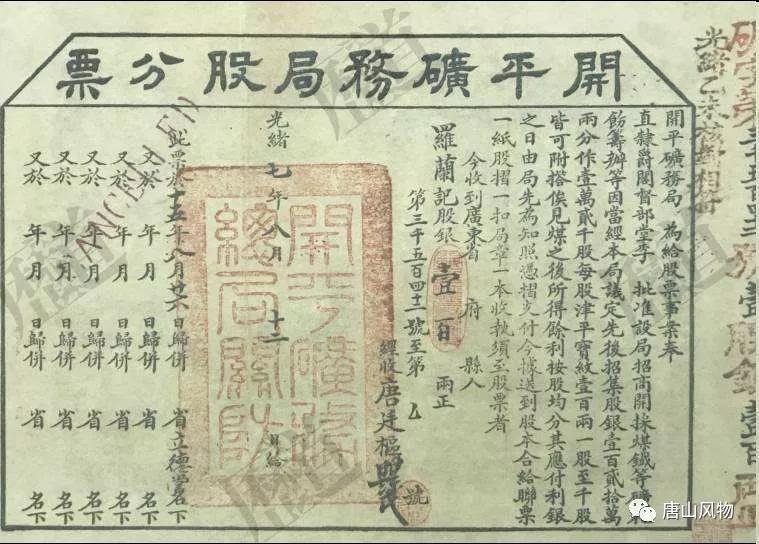 開平礦務局股分票
開平礦務局為給股票事案奉
直隸爵閣督部堂李 批准設局招商開採煤鐵等礦
飭籌辦等因當經本局議定先後招集股銀壹百貳拾萬
兩分作壹萬貳千股每股津平寶紋壹百兩一股至千股
皆可附搭俟見煤之後所得餘利按股均分其應付利銀
之日由局先為知照憑摺支付今據送到股本合給聯票
一紙股摺一扣局章一本收執須至股票者
今收到廣東省 府 縣人
羅蘭記股銀壹百兩正
第三千五百四十二號至第 號
經收唐廷樞
光緒七年八月十二日給
此票於十五年八月廿六日歸併 省立德堂名下
又於 年 月 日歸併 省 名下
又於 年 月 日歸併 省 名下
又於 年 月 日歸併 省 名下
又於 年 月 日歸併 省 名下
又於 年 月 日歸併 省 名下
開平礦務總局關防
CANCELLED
光緒乙未
壹股銀壹百兩
唐山风物